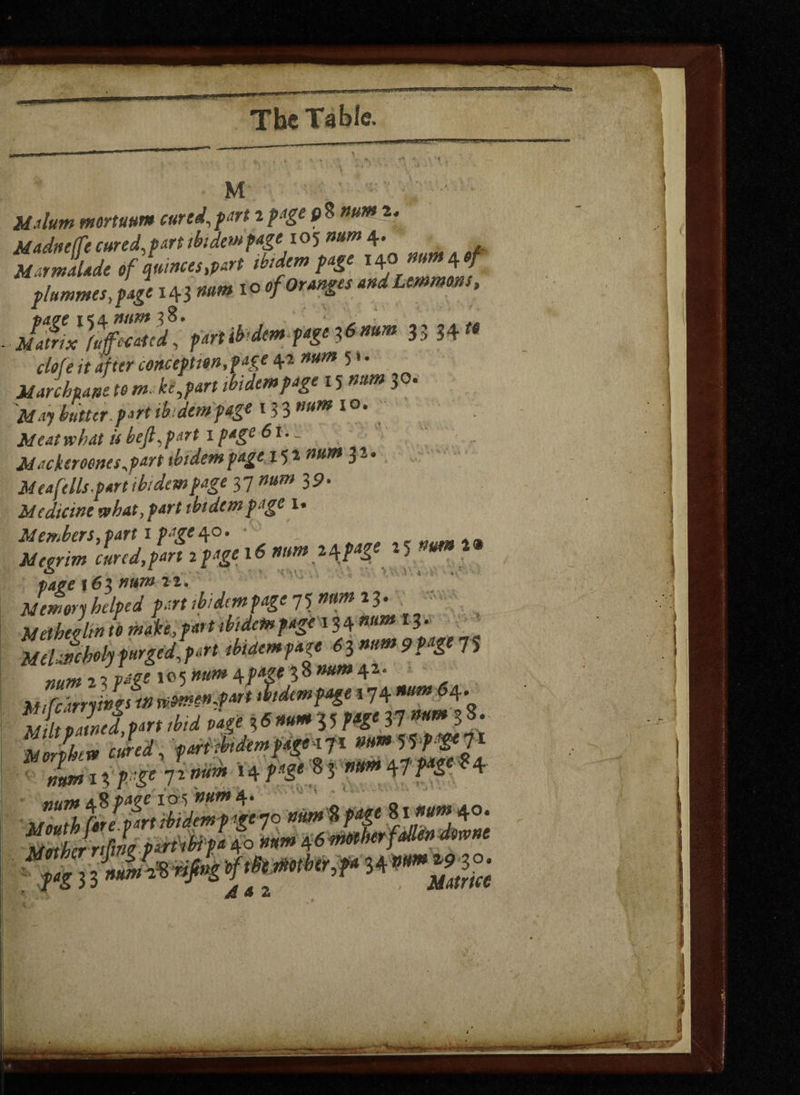 The Table.
M
Malum mortuum cured, part 2 page 98 num 2.
Madnesse cured, part ibidem page 105 num 4.
Marmalade of quinces, part ibidem page 140 num 4 of
plummes, page 143 num 10 of Oranges and Lemmons,
page 154 num 38.
Matrix suffocated, part ibidem page 36 num 33 34 to
close it after conception, page 42 num 51.
Marchpane to make, part ibidem page 15 num 30.
May butter part ibidem page 133 num 10.
Meat what is best, part 1 page 61.
Mackeroones, part ibidem page 152 num 32.
Meafells part ibidem page 37 num 39.
Medicine what, part ibidem page 1.
Members, part 1 page 40.
Megrim cured, part 2 page 16 num 24 page 25 num 20
page 163 num 22.
Memory helped part ibidem page 75 num 23.
Metheglin to make, part ibidem page 134 num 13.
Melancholy purged, part ibidem page 63 num 9 page 75
num 23 page 105 num 4 page 38 num 42.
Miscarryings in women, part ibidem page 174 num 64.
Milt pained, part ibid page 36 num 35 page 37 num 38.
Morphew cured, part ibidem page 171 num 55 page 71
num 13 page 72 num 14 page 83 num 47 page 84
num 48 page 105 num 4.
Mouth sore part ibidem page 70 num 8 page 81 num 40.
Mother rising part ibi pa 40 num 46 mother fallen downe
pag 33 num 28 rising of the mother, pa 34 num 29 30.
A a 2 Matrice